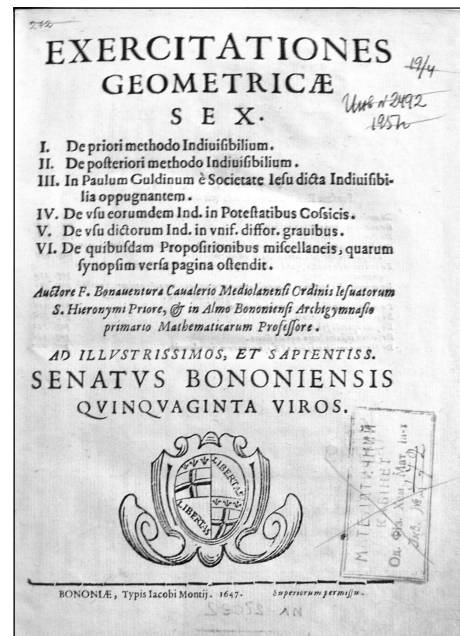 272
EXERCITATIONES
GEOMETRICÆ
SEX.
19/4
2492
I. De priori methodo Indiuisibilium.
II. De posteriori methodo Indiuisibilium.
III. In Paulum Guldinum è Societate Iesu dicta Indiuisibi-
lia oppugnantem.
IV. De vsu eorumdem Ind. in Potestatibus Cossicis.
V. De vsu dictorum Ind. in vnif. diffor. grauibus.
VI. De quibusdam Propositionibus miscellaneis, quarum
synopsim versa pagina ostendit.
Auctore F. Bonauentura Caualerio Mediolanensi Ordinis Iesuatorum
S. Hieronymi Priore, & in Almo Bononiensi Archigymnasio
primario Mathematicarum Professore.
AD ILLVSTRISSIMOS, ET SAPIENTISS.
SENATVS BONONIENSIS
QVINQVAGINTA VIROS.
LIBERTAS
LIBERTAS
МАТЕМАТИЧНИЙ
КАБІНЕТ
Од. Фіз. Хем. Мат. Ін-т
BONONIÆ, Typis Iacobi Montij. 1647. Superiorum permissu.